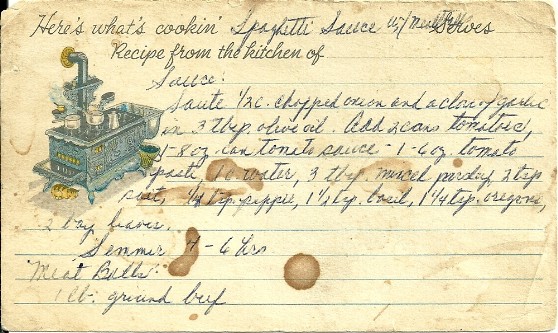 Here's what's cookin' Spaghetti Sauce w/ Meat Balls Serves
Recipe from the kitchen of
Sauce:
Saute 1/2 c. chopped onion and a clove of garlic
in 3 tbsp. olive oil. Add 2 cans tomatoes,
1-8 oz. can tomato sauce - 1-6 oz. tomato
paste, water, 3 tbsp. minced parsley, 2 tsp
salt, 1/4 tsp. pepper, 1 1/2 tsp. basil, 1 1/4 tsp. oregano,
2 bay leaves.
Semmer 4 - 6 hrs
Meat Balls:
1 lb. ground beef